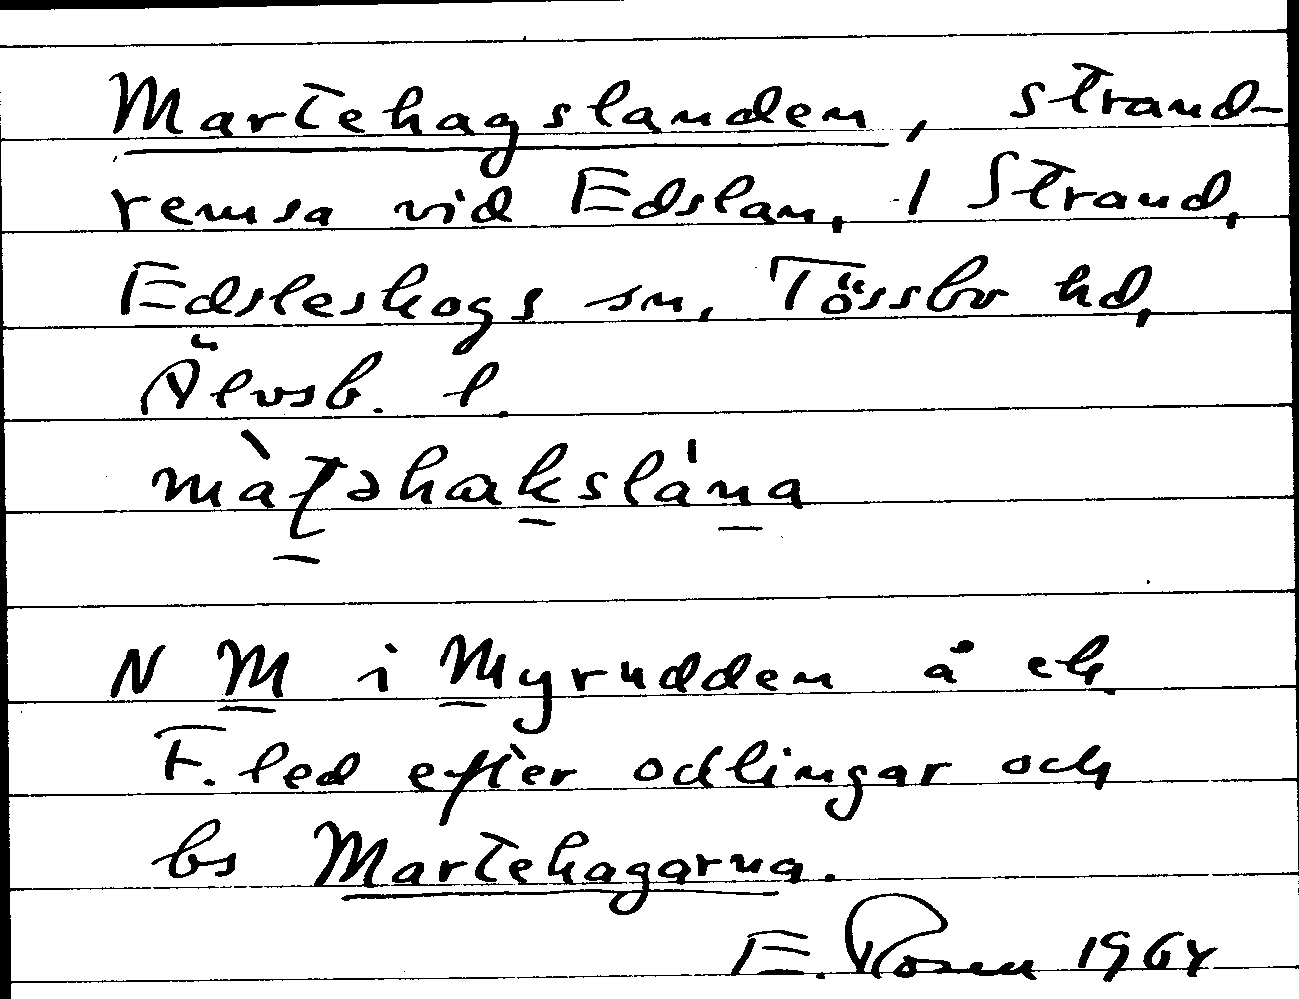 Martehagslanden, strand-
remsa vid Edslan, 1 Strand,
Edsleskogs sn, Tössbo hd,
Älvsb. l.
màʈəhakslána
N M i Myrudden å ek.
F.led efter odlingar och
bs Martehagarna.
E. Rosen 1964